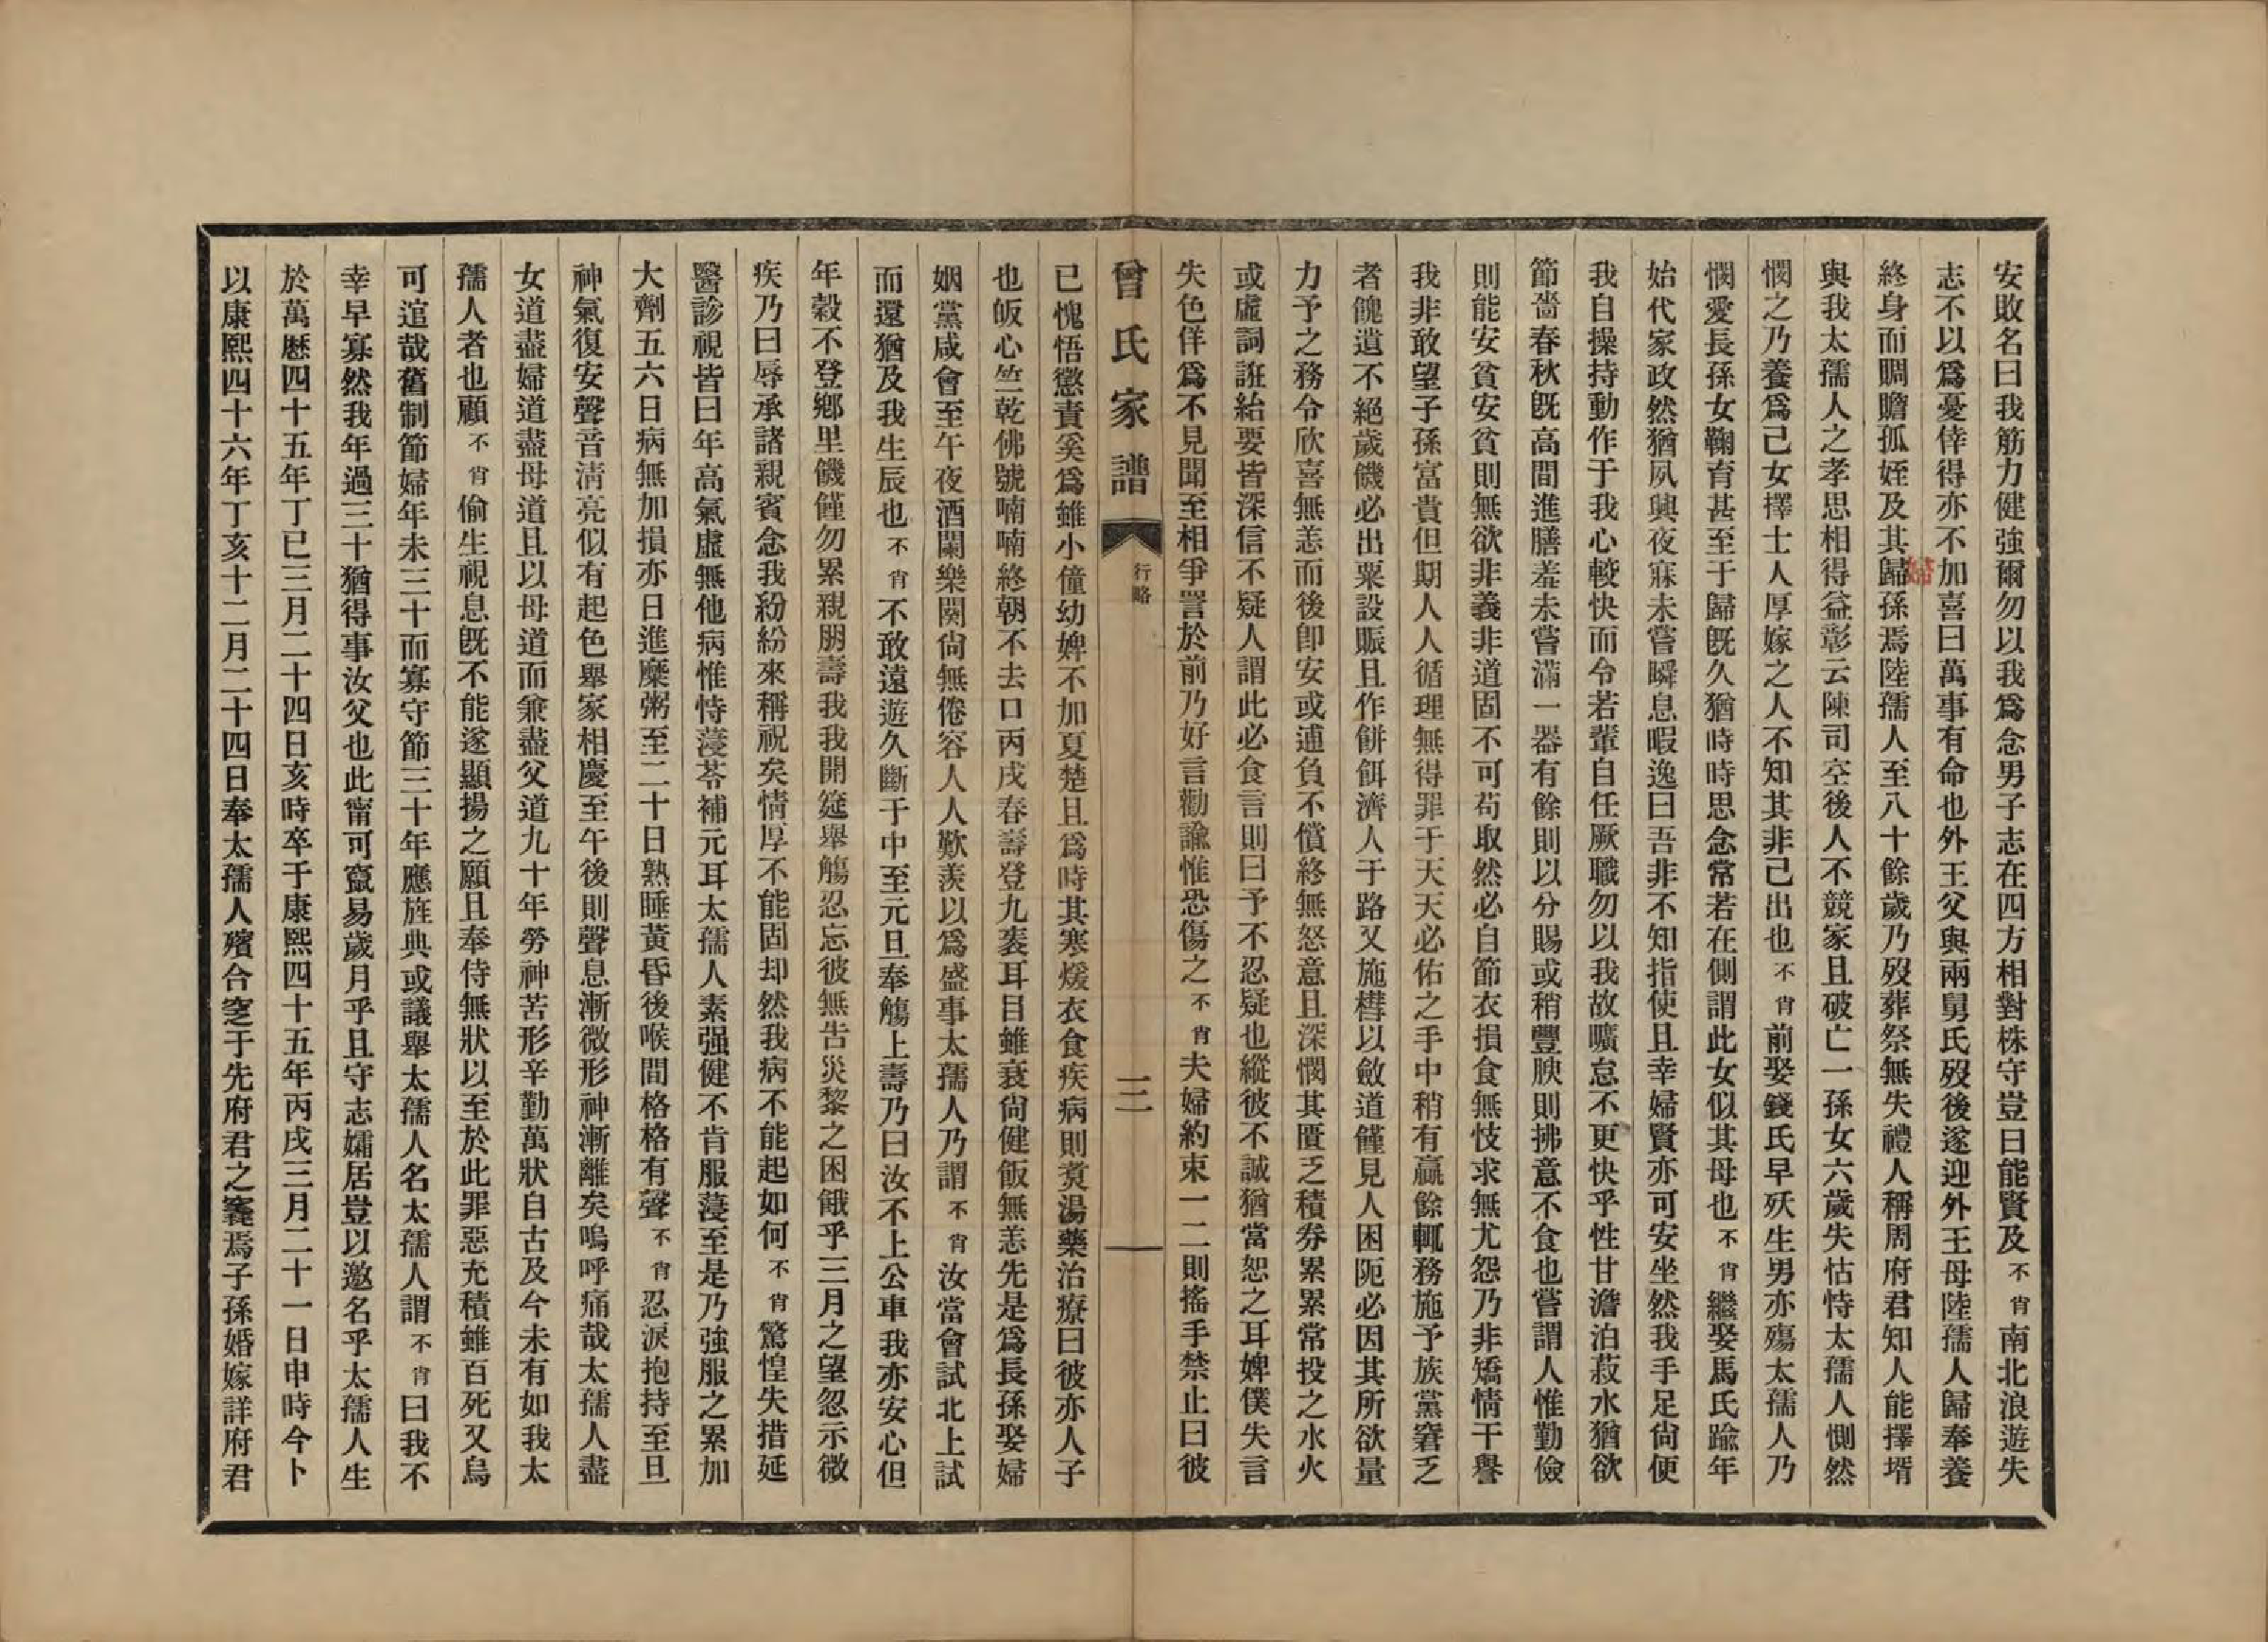 安敗名曰我筋力健強爾勿以我爲念男子志在四方相對株守豈曰能賢及不肖南北浪遊失
志不以爲憂倖得亦不加喜曰萬事有命也外王父與兩舅氏歿後遂迎外王母陸孺人歸奉養
終身而賙贍孤姪及其歸孫焉陸孺人至八十餘歲乃歿葬祭無失禮人稱周府君知人能擇壻
婦
與我太孺人之孝思相得益彰云陳司空後人不競家且破亡一孫女六歲失怙恃太孺人惻然
憫之乃養爲己女擇士人厚嫁之人不知其非己出也不肖前娶錢氏早殀生男亦殤太孺人乃
憫愛長孫女鞠育甚至于歸旣久猶時時思念常若在側謂此女似其母也不肖繼娶馬氏踰年
始代家政然猶夙興夜寐未嘗瞬息暇逸曰吾非不知指使且幸婦賢亦可安坐然我手足尙便
我自操持動作于我心較快而令若輩自任厥職勿以我故曠怠不更快乎性甘澹泊菽水猶欲
節嗇春秋旣高間進膳羞未嘗滿一器有餘則以分賜或稍豐腴則拂意不食也嘗謂人惟勤儉
則能安貧安貧則無欲非義非道固不可苟取然必自節衣損食無忮求無尤怨乃非矯情干譽
我非敢望子孫富貴但期人人循理無得罪于天天必佑之手中稍有贏餘輒務施予族黨窘乏
者餽遺不絕歲饑必出粟設賑且作餅餌濟人于路又施槥以斂道僅見人困阨必因其所欲量
力予之務令欣喜無恙而後卽安或逋負不償終無怒意且深憫其匱乏積券累累常投之水火
或虛詞誑紿要皆深信不疑人謂此必食言則曰予不忍疑也縱彼不誠猶當恕之耳婢僕失言
失色佯爲不見聞至相爭詈於前乃好言勸諭惟恐傷之不肖夫婦約束一二則搖手禁止曰彼
曾氏家譜
行略
三
已愧悟懲責奚爲雖小僮幼婢不加夏楚且爲時其寒煖衣食疾病則煑湯藥治療曰彼亦人子
也皈心竺乾佛號喃喃終朝不去口丙戌春壽登九袠耳目雖衰尙健飯無恙先是爲長孫娶婦
姻黨咸會至午夜酒闌樂闋尙無倦容人人歎羨以爲盛事太孺人乃謂不肖汝當會試北上試
而還猶及我生辰也不肖不敢遠遊久斷于中至元旦奉觴上壽乃曰汝不上公車我亦安心但
年穀不登鄉里饑饉勿累親朋壽我我開筵舉觴忍忘彼無告災黎之困餓乎三月之望忽示微
疾乃曰辱承諸親賓念我紛紛來稱祝矣情厚不能固却然我病不能起如何不肖驚惶失措延
醫診視皆曰年高氣虛無他病惟恃蓡苓補元耳太孺人素强健不肯服蓡至是乃強服之累加
大劑五六日病無加損亦日進糜粥至二十日熟睡黃昏後喉間格格有聲不肖忍淚抱持至旦
神氣復安聲音淸亮似有起色舉家相慶至午後則聲息漸微形神漸離矣嗚呼痛哉太孺人盡
女道盡婦道盡母道且以母道而兼盡父道九十年勞神苦形辛勤萬狀自古及今未有如我太
孺人者也顧不肖偷生視息旣不能遂顯揚之願且奉侍無狀以至於此罪惡充積雖百死又烏
可逭哉舊制節婦年未三十而寡守節三十年應旌典或議舉太孺人名太孺人謂不肖曰我不
幸早寡然我年過三十猶得事汝父也此甯可竄易歲月乎且守志孀居豈以邀名乎太孺人生
於萬歷四十五年丁巳三月二十四日亥時卒于康熙四十五年丙戌三月二十一日申時今卜
以康熙四十六年丁亥十二月二十四日奉太孺人殯合窆于先府君之竁焉子孫婚嫁詳府君